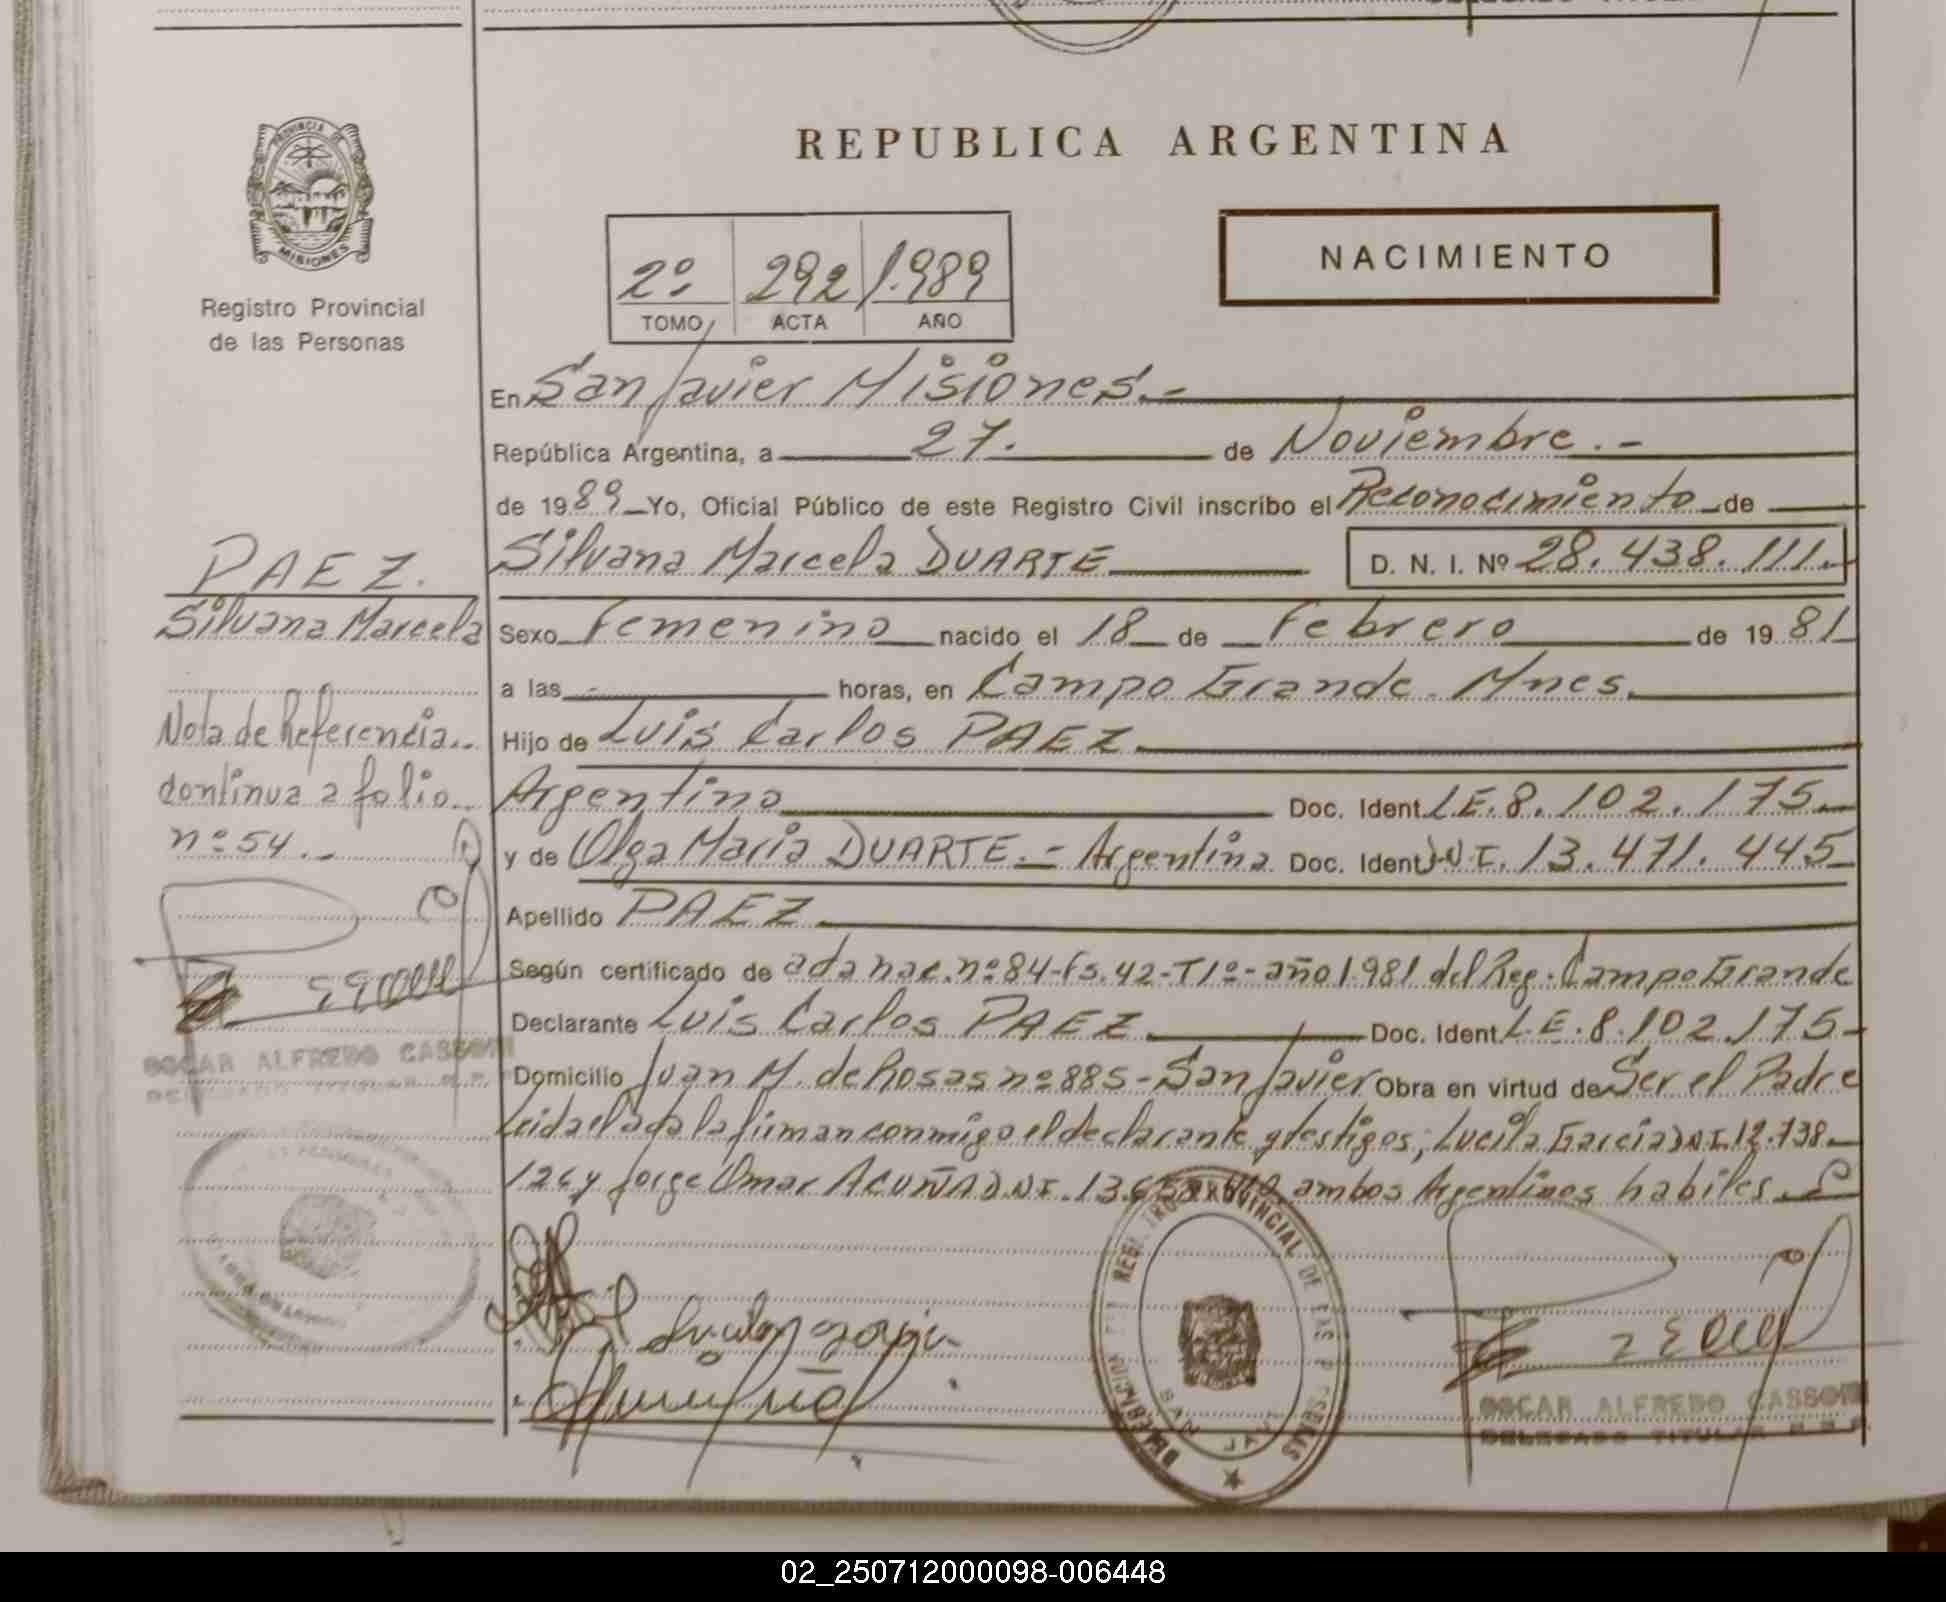 REPUBLICA ARGENTINA
PROVINCIA DE
MISIONES
Registro Provincial
de las Personas
2º 292 1.989
TOMO ACTA AÑO
NACIMIENTO
En San Javier Misiones.-
República Argentina, a 27. de Noviembre.-
de 1989 Yo, Oficial Público de este Registro Civil inscribo el Reconocimiento de
Silvana Marcela DUARTE D. N. I. Nº 28.438.111.
Sexo Femenino nacido el 18 de Febrero de 1981
a las - horas, en Campo Grande. Mnes.
Hijo de Luis Carlos PAEZ
Argentino Doc. Ident L.E. 8.102.175
y de Olga Maria DUARTE.- Argentina Doc. Ident D.N.I. 13.471.445
Apellido PAEZ
Según certificado de acta nac. nº 84-Fs. 42-T1º-año 1.981 del Reg. Campo Grande
Declarante Luis Carlos PAEZ Doc. Ident L.E. 8.102.175
Domicilio Juan M. de Rosas nº 885-San Javier Obra en virtud de Ser el Padre
Leida el acta la firman conmigo el declarante y testigos; Lucila Garcia D.N.I. 12.738.
126 y Jorge Omar ACUÑA D.N.I. 13. ambos Argentinos habiles.
PAEZ.
Silvana Marcela
Nota de Referencia..
continua a folio..
nº 54.-
OSCAR ALFREDO CASSONI
DELEGADO TITULAR R.P.P.
DELEGACION REGISTRO PROVINCIAL DE LAS PERSONAS
SAN JAVI
OSCAR ALFREDO CASSONI
DELEGADO TITULAR R.P.P.
02_250712000098-006448